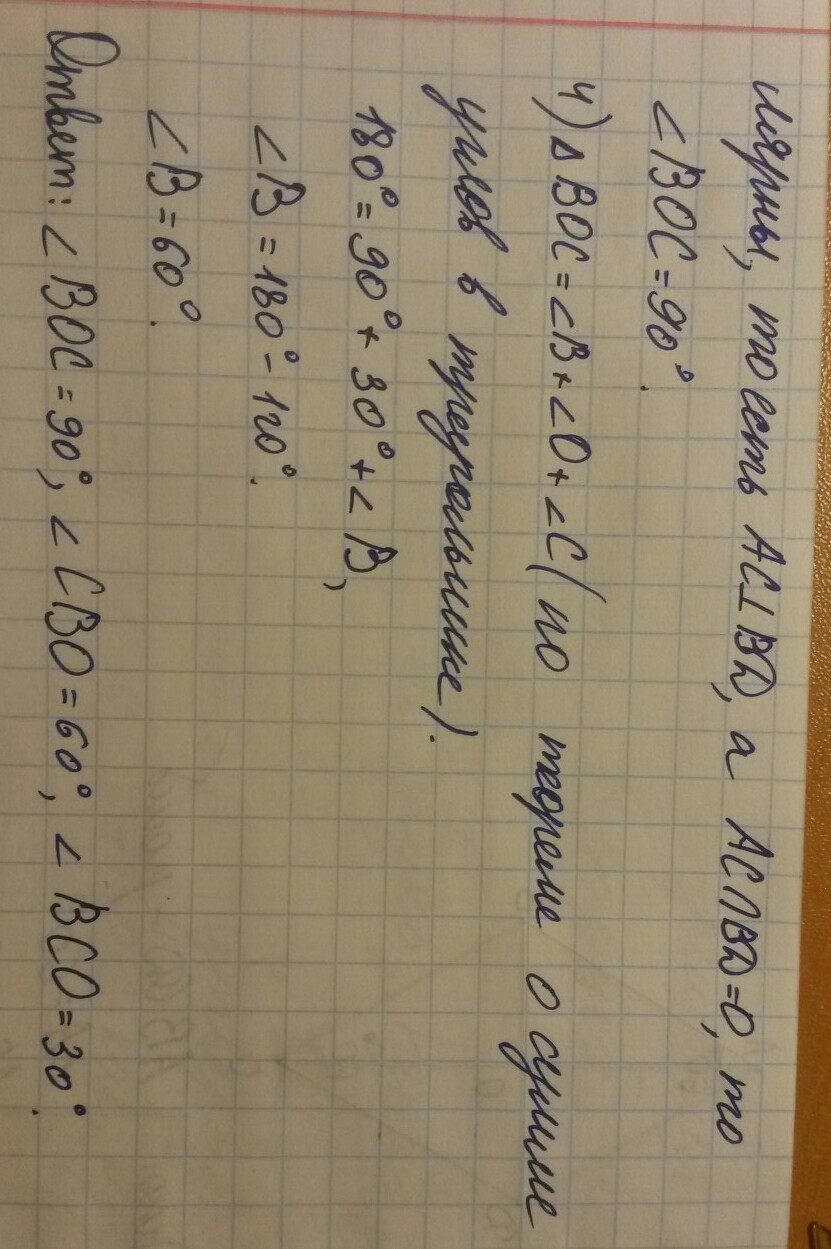 лярны, то есть AC⊥BD, а AC∩BD=O, то
∠BOC=90°.
4) △BOC=∠B+∠O+∠C(по теореме о сумме
углов в треугольнике).
180°=90°+30°+∠B,
∠B=180°-120°.
∠B=60°.
Ответ: ∠BOC=90°, ∠CBO=60°, ∠BCO=30°.